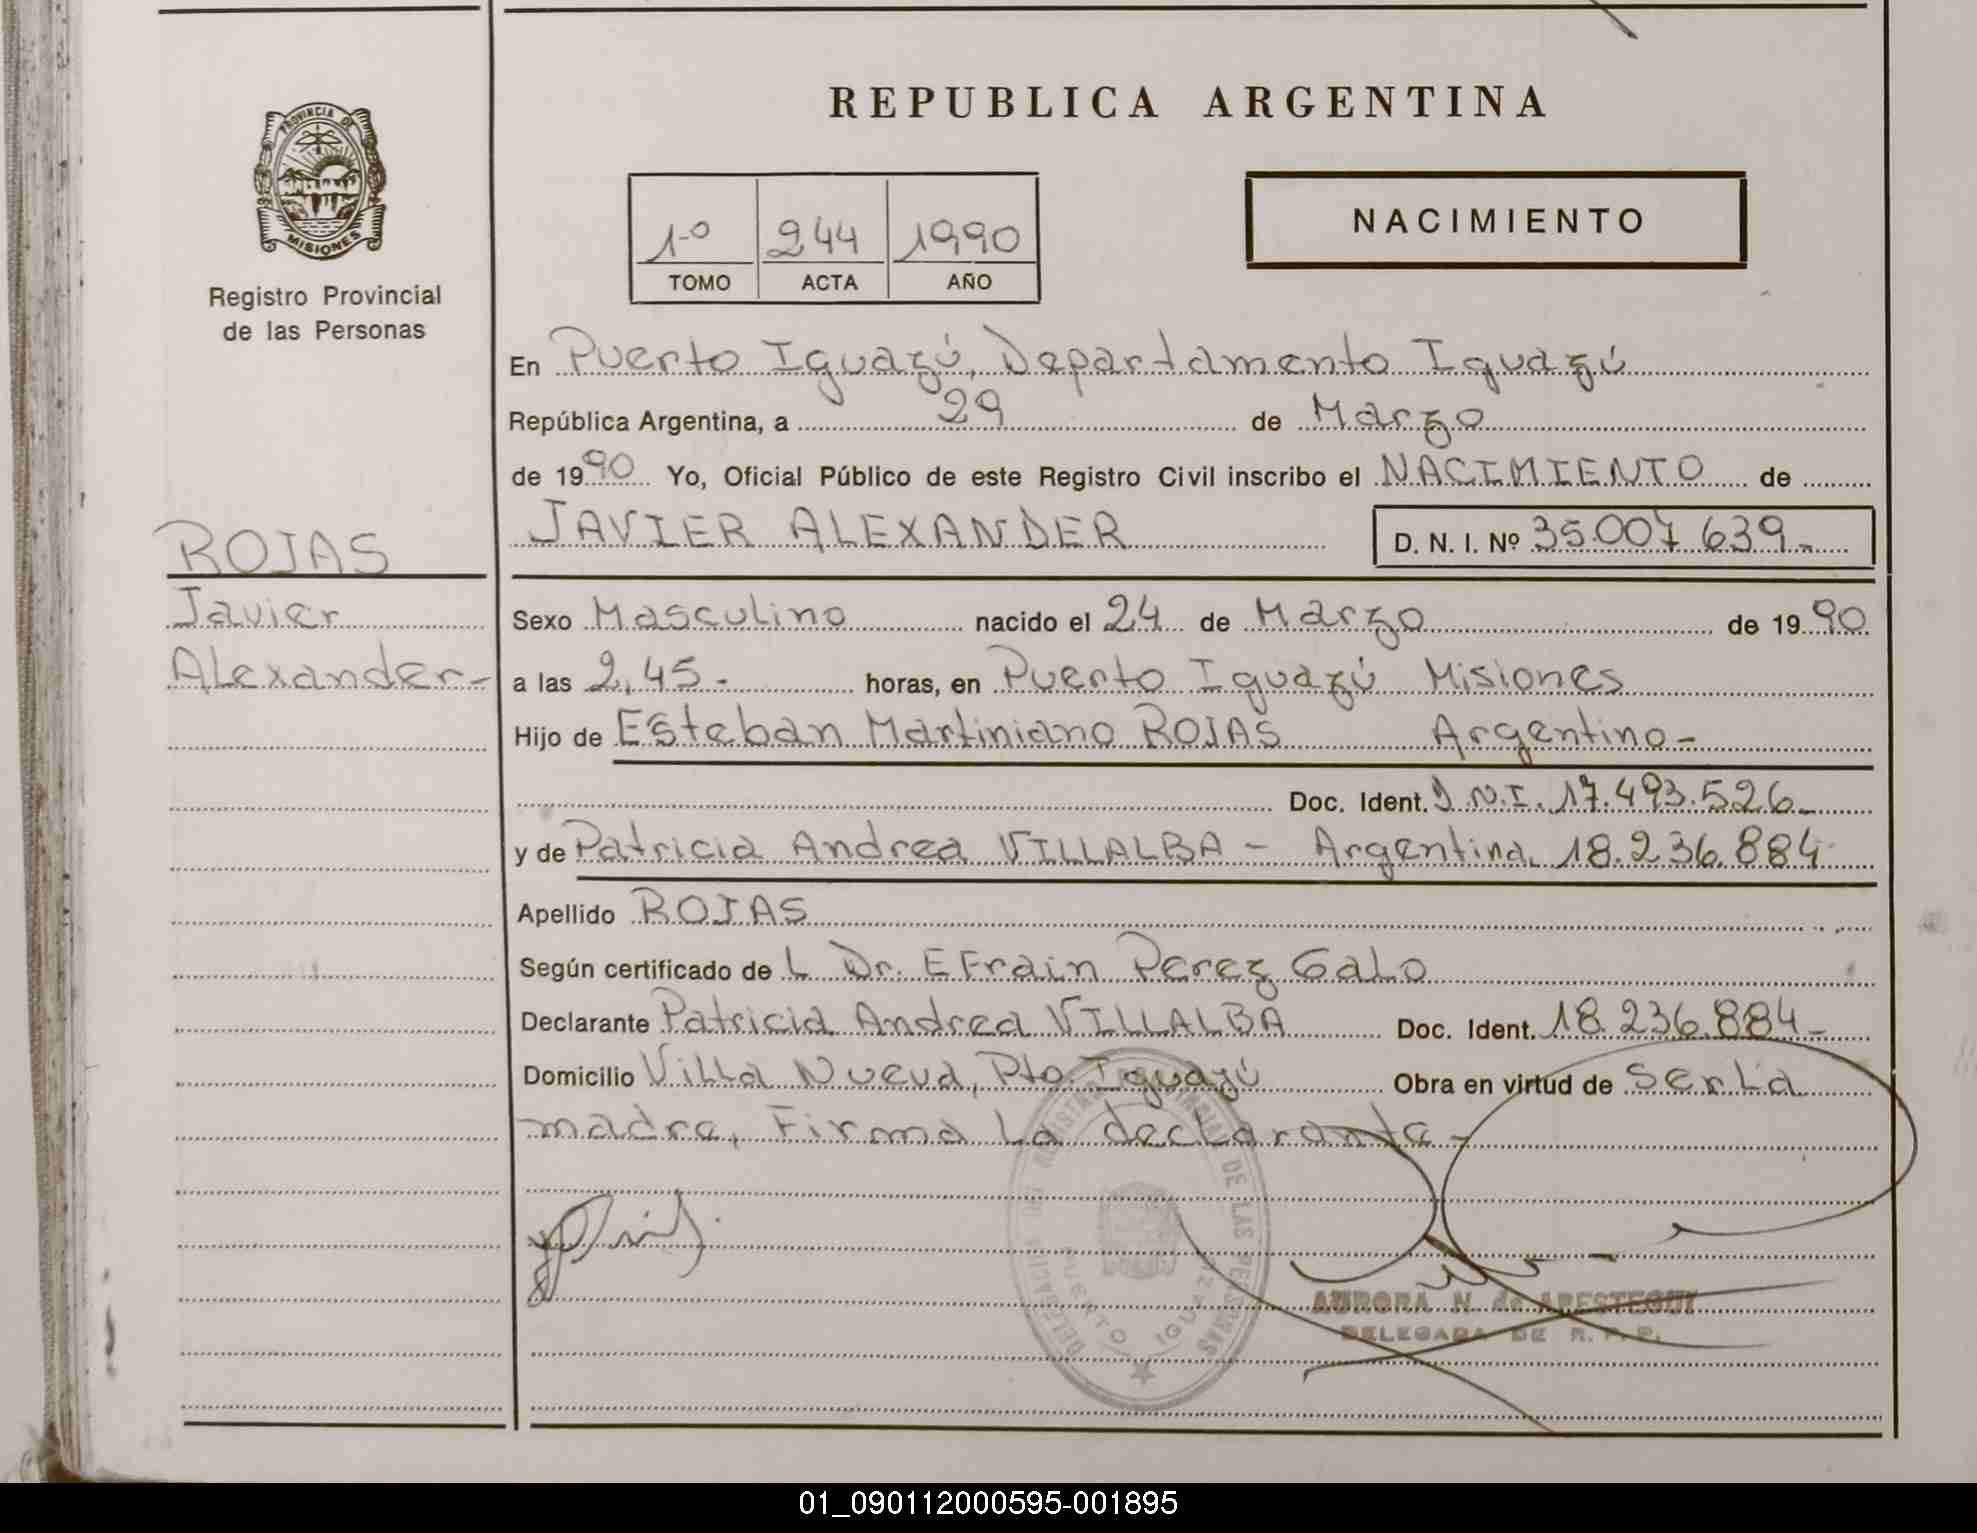 REPUBLICA ARGENTINA
PROVINCIA DE
MISIONES
Registro Provincial
de las Personas
1º 244 1990
TOMO ACTA AÑO
NACIMIENTO
En Puerto Iguazú, Departamento Iguazú
República Argentina, a 29 de Marzo
de 1990 Yo, Oficial Público de este Registro Civil inscribo el NACIMIENTO de
JAVIER ALEXANDER D. N. I. Nº 35.007.639.-
ROJAS
Javier
Alexander-
Sexo Masculino nacido el 24 de Marzo de 1990
a las 2,45.- horas, en Puerto Iguazú Misiones
Hijo de Esteban Martiniano ROJAS Argentino-
Doc. Ident. D.N.I. 17.493.526-
y de Patricia Andrea VILLALBA - Argentina. 18.236.884
Apellido ROJAS
Según certificado de L Dr. Efrain Perez Galo
Declarante Patricia Andrea VILLALBA Doc. Ident. 18.236.884-
Domicilio Villa Nueva, Pto. Iguazú Obra en virtud de ser La
madre, Firma La declarante-
REGISTRO PROVINCIAL DE LAS PERSONAS
PUERTO IGUAZU
AURORA N. de ARESTEGUI
DELEGADA DE R. P. P.
01_090112000595-001895